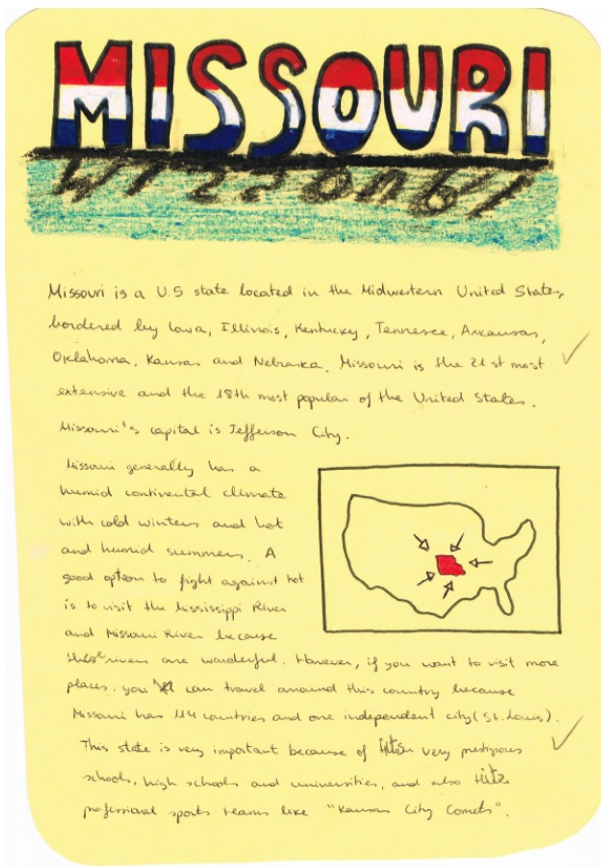 MISSOURI
Missouri is a U.S state located in the Midwestern United States,
bordered by Iowa, Illinois, Kentucky, Tennesee, Arkansas,
Oklahoma, Kansas and Nebraska. Missouri is the 21st most
extensive and the 18th most popular of the United States.
Missouri's capital is Jefferson City.
Missouri generally has a
humid continental climate
with cold winters and hot
and humid summers. A
good option to fight against hot
is to visit the Mississippi River
and Missouri River because
these rivers are wonderful. However, if you want to visit more
places, you can travel around this country because
Missouri has 114 countries and one independent city (St. Louis).
This state is very important because of its very prestigious
schools, high schools and universities, and also its
professional sports teams like "Kansas City Comets".